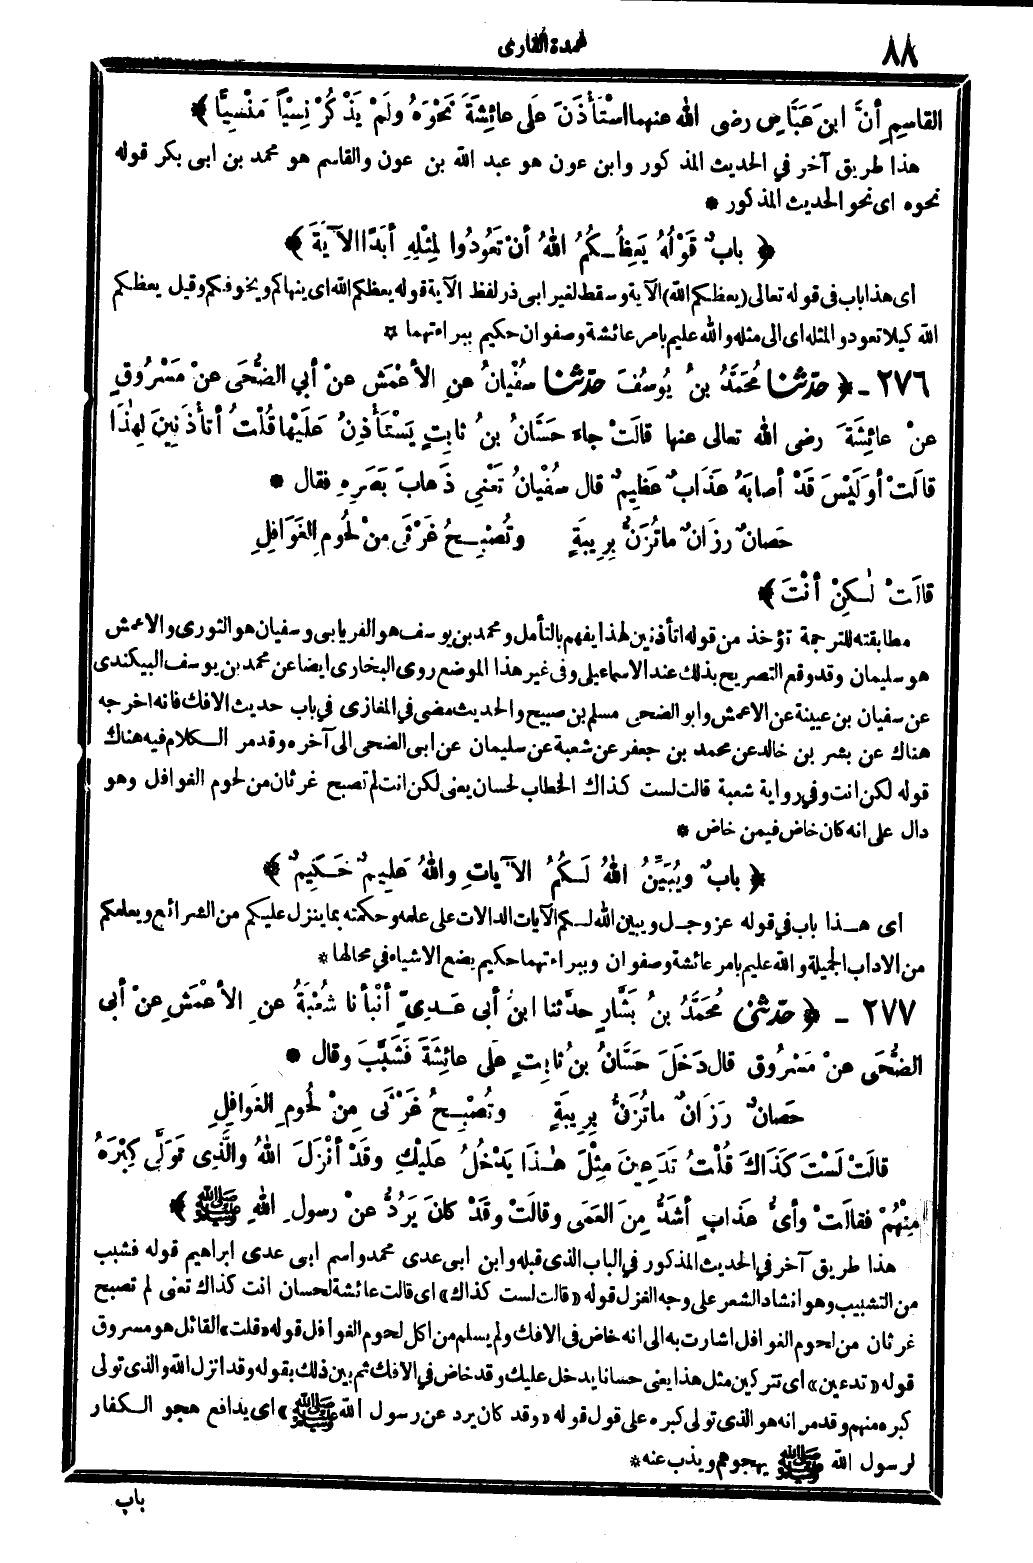 ٨٨
عمدة القارى
القاسِمِ أنَّ ابنَ عَبَّاسٍ رضى الله عنهما اسْتَأْذَنَ عَلَى عائِشَةَ نَحْوَهُ ولَمْ يَذْكُرْ نِسْيًا مَنْسِيًّا ﴾
هذا طريق آخر في الحديث المذكور وابن عون هو عبد الله بن عون والقاسم هو محمد بن ابى بكر قوله
نحوه اى نحو الحديث المذكور *
﴿ بابٌ قَوْلُهُ يَعِظُـكُمُ اللهُ أنْ تَعُودُوا لِمِثْلِهِ أبَدًا الآيَةَ ﴾
أى هذا باب فى قوله تعالى (يعظكم الله) الآية وسقط لغير ابى ذر لفظ الآية قوله يعظكم الله اى ينهاكم ويخوفكم وقيل يعظكم
الله كيلا تعودو المثله اى الى مثله والله عليم بامر عائشة وصفوان حكيم ببراءتهما *
٢٧٦ - ﴿ حدّثنا مُحَمَّدُ بنُ يُوسُفَ حدّثنا سُفْيانُ عنِ الأعْمَشِ عنْ أبي الضُّحَى عنْ مَسْرُوقٍ
عنْ عائِشَةَ رضى الله تعالى عنها قالَتْ جاءَ حَسَّانُ بنُ ثابِتٍ يَسْتَأْذِنُ عَلَيْها قُلْتُ أتَأْذَنِينَ لِهٰذَا
قالَتْ أوَلَيْسَ قَدْ أصابَهُ عَذَابٌ عَظِيمٌ قال سُفْيانُ تَعْنِي ذَهابَ بَصَرِهِ فقال *
حَصانٌ رزَانٌ ماتُزَنُّ بِرِيبَةٍ وتُصْبِـحُ غَرْثَى مِنْ لُحُومِ الغَوَافِلِ
قالَتْ لٰـكِنْ أنْتَ ﴾
مطابقته للترجمة تؤخذ من قوله اتأذنين لهذا يفهم بالتأمل ومحمد بن يوسف هو الفريابى وسفيان هو الثورى والاعمش
هو سليمان وقد وقع التصريح بذلك عند الاسماعيلى وفى غير هذا الموضع روى البخارى ايضا عن محمد بن يوسف البيكندى
عن سفيان بن عيينة عن الاعمش وابو الضحى مسلم بن صبيح والحديث مضى في المغازى في باب حديث الافك فانه اخرجه
هناك عن بشر بن خالد عن محمد بن جعفر عن شعبة عن سليمان عن ابى الضحى الى آخره وقد مر الـكلام فيه هناك
قوله لكن انت وفي رواية شعبة قالت لست كذاك الخطاب لحسان يعنى لكن انت لم تصبح غرثان من لحوم الغوافل وهو
دال على انه كان خاض فيمن خاض *
﴿ بابٌ ويُبَيِّنُ اللهُ لَـكُمُ الآياتِ واللهُ عَلِيمٌ حَكِيمٌ ﴾
اى هـذا باب في قوله عز وجـل ويبين الله لـكم الآيات الدالات على علمه وحكمته بما ينزل عليكم من الشرائع ويعلمكم
من الاداب الجميلة والله عليم بامر عائشة وصفوان وببراءتهما حكيم يضع الاشياء في محالها *
٢٧٧ - ﴿ حدّثنى مُحَمَّدُ بنُ بَشَّارٍ حدَّثنا ابنُ أبى عَـدِيٍّ أنْبأنا شُعْبَةُ عنِ الأعْمَشِ عنْ أبى
الضُّحَى عنْ مَسْرُوقٍ قال دَخَلَ حَسَّانُ بنُ ثابِتٍ عَلَى عائِشَةَ فَشَبَّبَ وقال *
حَصانٌ رَزَانٌ ماتُزَنُّ بِرِيبَةٍ وتُصْبِـحُ غَرْثَى مِنْ لُحُومِ الغَوافِلِ
قالَتْ لَسْتَ كَذَاكَ قُلْتُ تَدَعِينَ مِثْلَ هٰـذَا يَدْخُلُ عَلَيْكِ وقَدْ أنْزَلَ اللهُ والَّذِى تَوَلَّى كِبْرَهُ
مِنْهُمْ فقالَتْ وأىُّ عَذابٍ أشَدُّ مِنَ العَمَى وقالَتْ وقَدْ كانَ يَرُدُّ عنْ رسولِ اللهِ ﷺ ﴾
هذا طريق آخر في الحديث المذكور في الباب الذى قبله وابن ابى عدى محمد واسم ابى عدى ابراهيم قوله فشبب
من التشبيب وهو انشاد الشعر على وجه الغزل قوله «قالت لست كذاك» اى قالت عائشة لحسان انت كذاك تعنى لم تصبح
غرثان من لحوم الغوافل اشارت به الى انه خاض فى الافك ولم يسلم من اكل لحوم الغوافل قوله «قلت» القائل هو مسروق
قوله «تدعين» اى تتركين مثل هذا يعنى حسانا يدخل عليك وقد خاض في الافك ثم بين ذلك بقوله وقد انزل الله والذى تولى
كبره منهم وقد مر انه هو الذى تولى كبره على قول قوله «وقد كان يرد عن رسول الله ﷺ» اى يدافع هجو الـكفار
لرسول الله ﷺ يهجوهم ويذب عنه *
باب